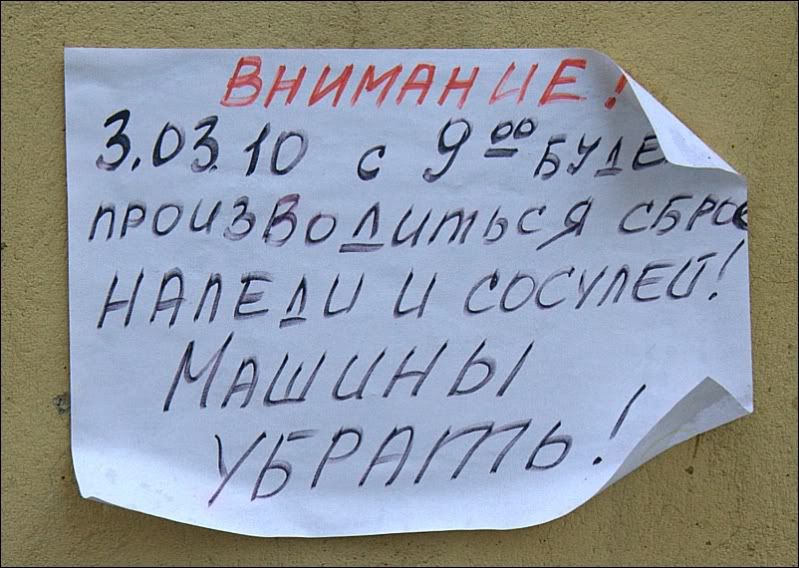 ВНИМАНИЕ!
3.03.10 с 9 00 БУДЕ
ПРОИЗВОДИТЬСЯ СБРОС
НАЛЕДИ И СОСУЛЕЙ!
МАШИНЫ
УБРАТЬ!